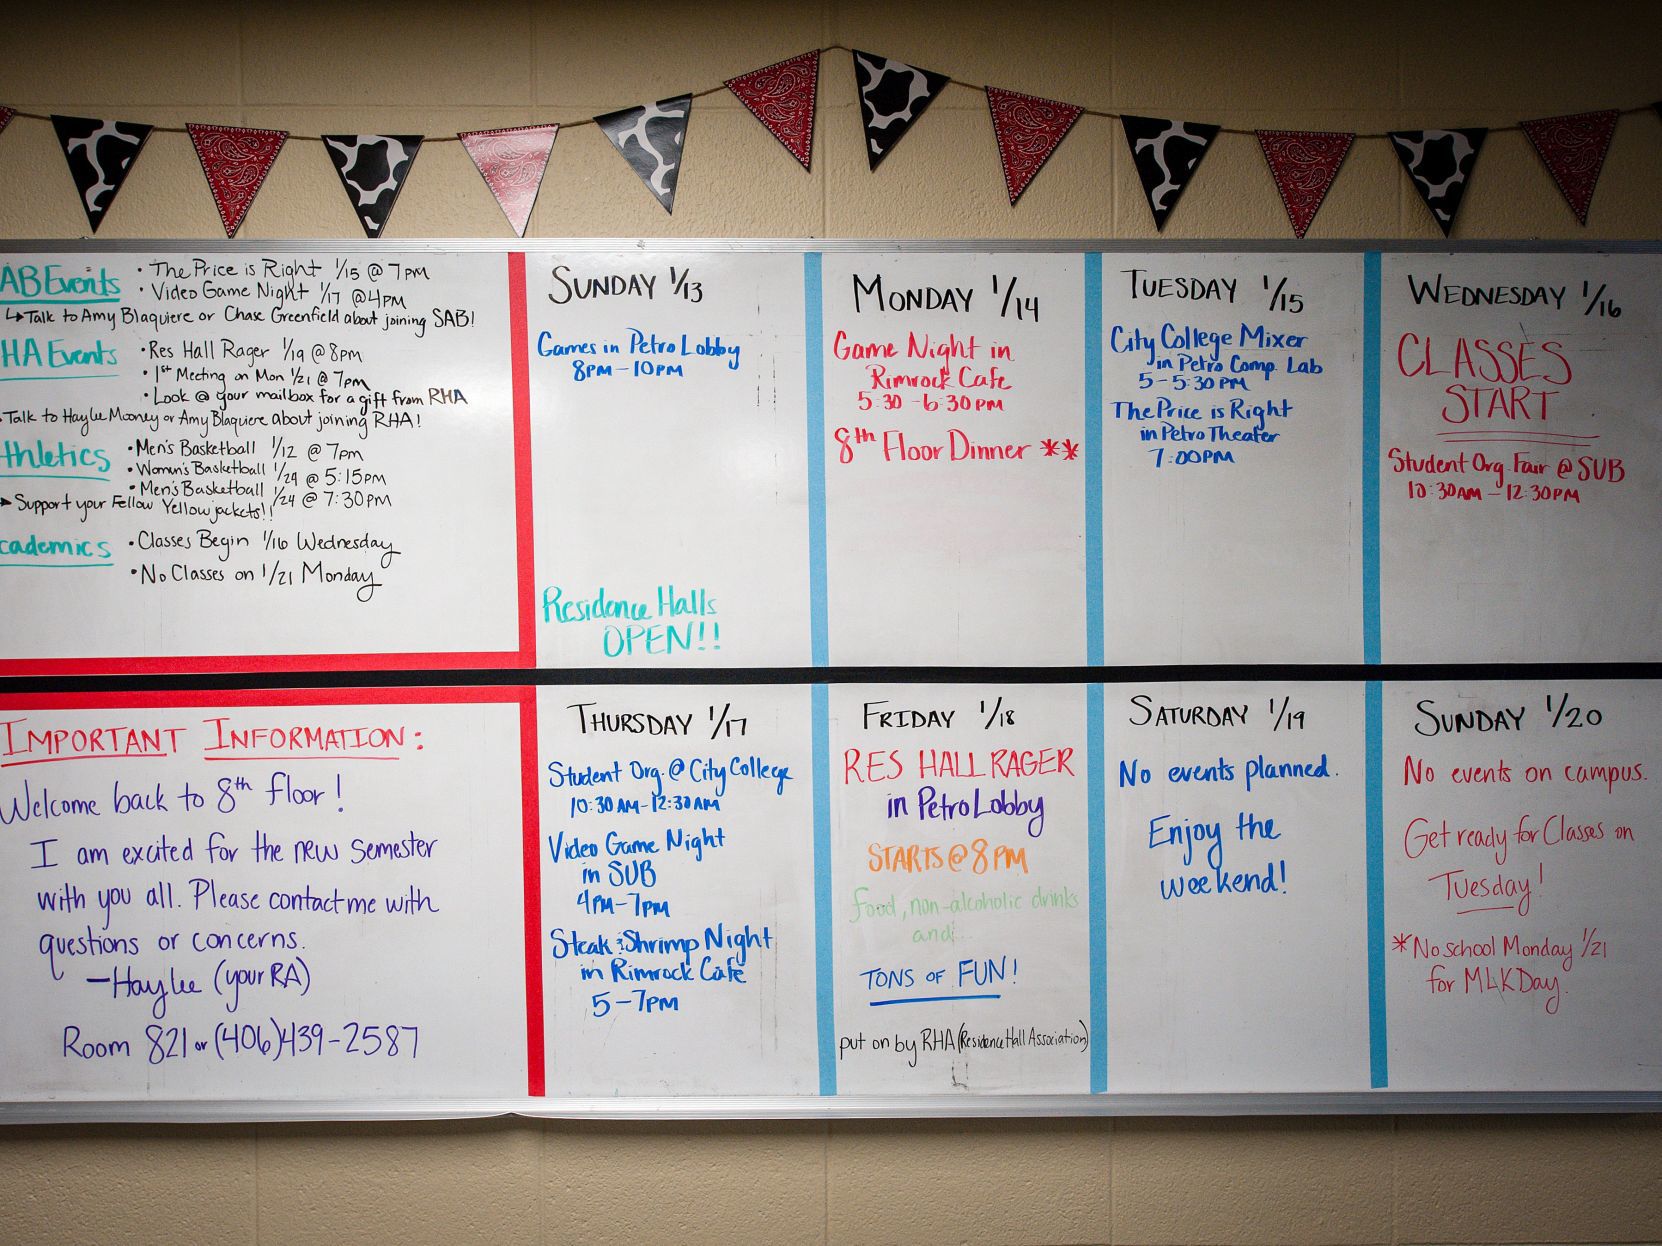 AB Events
• The Price is Right 1/15 @ 7PM
• Video Game Night 1/17 @ 4PM
↳ Talk to Amy Blaquiere or Chase Greenfield about joining SAB!
HA Events
• Res Hall Rager 1/19 @ 8pm
• 1st Meeting on Mon 1/21 @ 7pm
• Look @ your mailbox for a gift from RHA
• Talk to Haylee Mooney or Amy Blaquiere about joining RHA!
thletics
• Men's Basketball 1/12 @ 7pm
• Women's Basketball 1/24 @ 5:15pm
• Men's Basketball 1/24 @ 7:30PM
→ Support your Fellow Yellowjackets!!
cademics
• Classes Begin 1/16 Wednesday
• No Classes on 1/21 Monday
SUNDAY 1/13
Games in Petro Lobby
8PM - 10PM
Residence Halls
OPEN!!
MONDAY 1/14
Game Night in
Rimrock Cafe
5:30 - 6:30PM
8th Floor Dinner **
TUESDAY 1/15
City College Mixer
in Petro Comp. Lab
5 - 5:30 PM
The Price is Right
in Petro Theater
7:00PM
WEDNESDAY 1/16
CLASSES
START
Student Org. Fair @ SUB
10:30AM - 12:30PM
IMPORTANT INFORMATION:
Welcome back to 8th floor!
I am excited for the new semester
with you all. Please contact me with
questions or concerns.
- Haylee (your RA)
Room 821 or (406)439-2587
THURSDAY 1/17
Student Org. @ City College
10:30AM-12:30AM
Video Game Night
in SUB
4PM-7PM
Steak & Shrimp Night
in Rimrock Cafe
5 - 7PM
FRIDAY 1/18
RES HALL RAGER
in Petro Lobby
STARTS @ 8PM
food, non-alcoholic drinks
and...
TONS OF FUN!
put on by RHA (Residence Hall Association)
SATURDAY 1/19
No events planned.
Enjoy the
weekend!
SUNDAY 1/20
No events on campus.
Get ready for Classes on
Tuesday!
*No school Monday 1/21
for MLK Day.